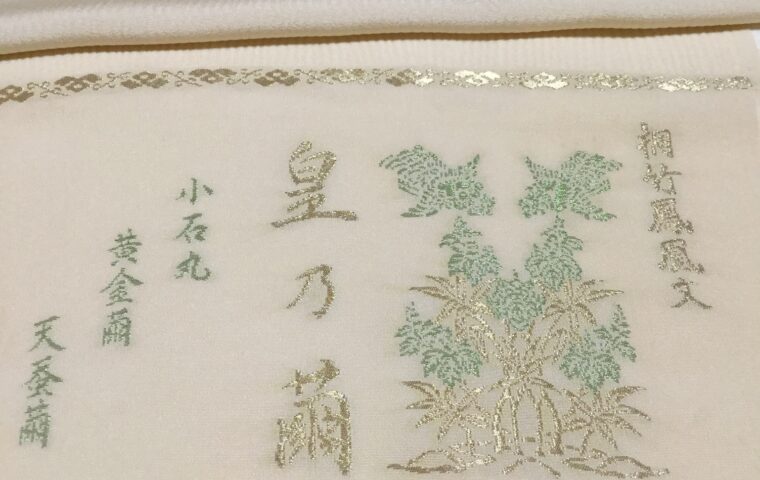 桐竹鳳凰文
皇乃繭
小石丸
黄金繭
天蚕繭